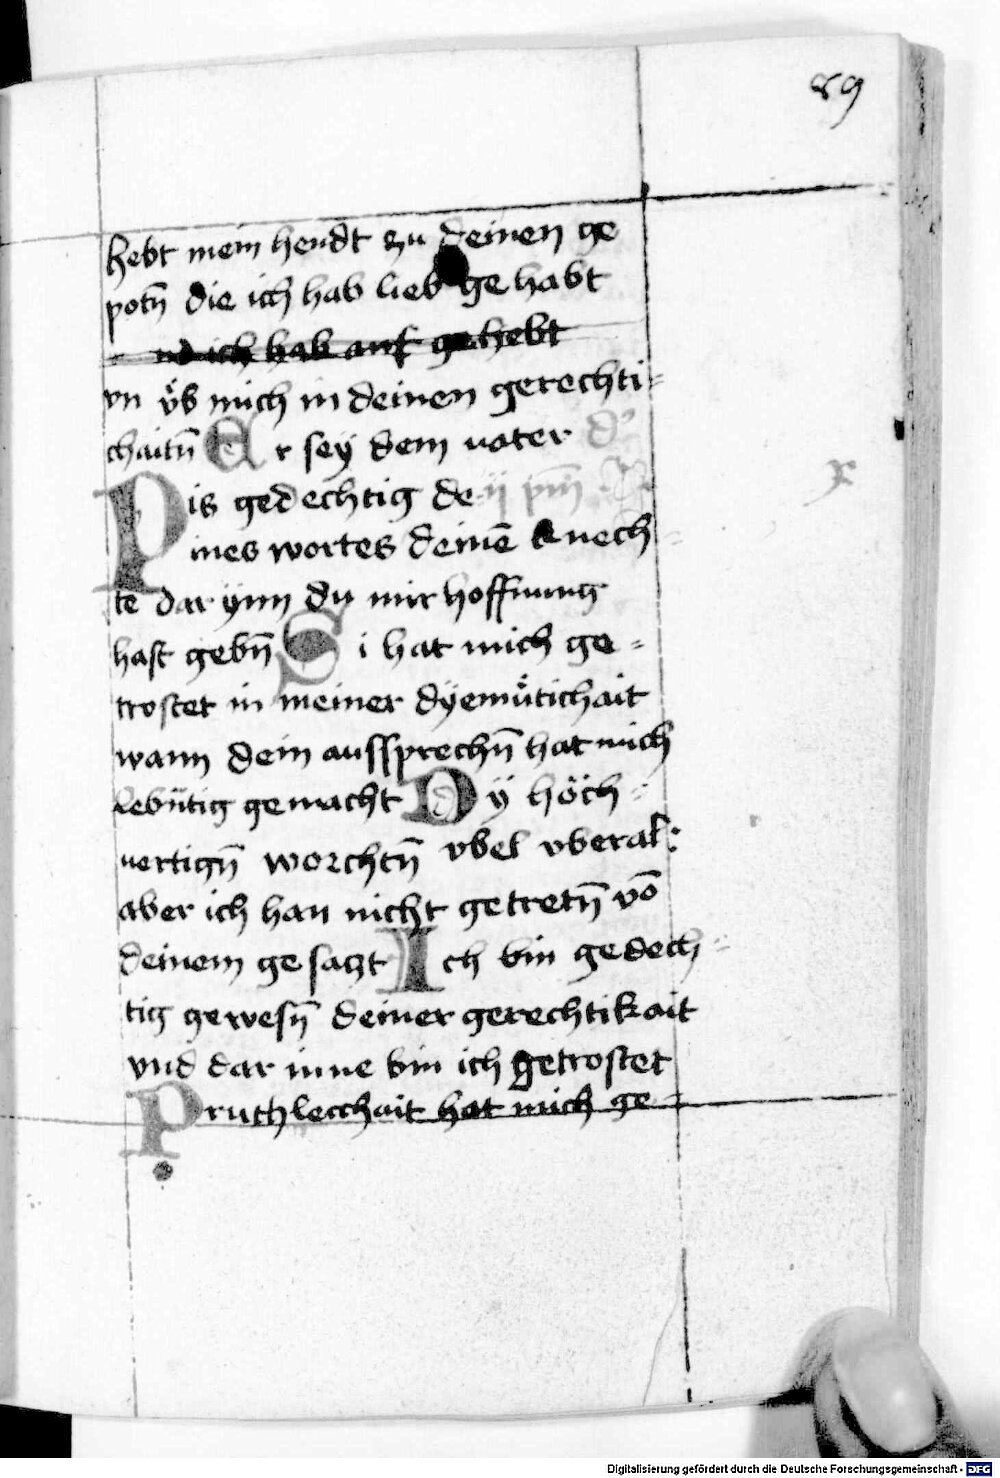 89
hebt mein hendt zu deinen ge
potn̄ die ich hab lieb ge habt
nd ich hab auf gehebt
vn vͤb mich in deinen gerechti=
chaitn̄ Er sey dem vater
Pis gedechtig de ij pm̄
ines wortes deinē knech=
te dar ÿnn du mir hoffnung
hast gebn̄ Si hat mich ge=
trostet in meiner dÿemuͤtichait
wann dein aussprechn̄ hat mich
lebn̄tig gemacht Dÿ höch=
uertign̄ worchtn̄ vbel vberal:
aber ich han nicht getretn̄ vō
deinem gesaczt Ich bin gedech=
tig gewesn̄ deiner gerechtikait
vnd dar inne bin ich getrostet
Pruchlecchait hat mich ge=
Digitalisierung gefördert durch die Deutsche Forschungsgemeinschaft - DFG